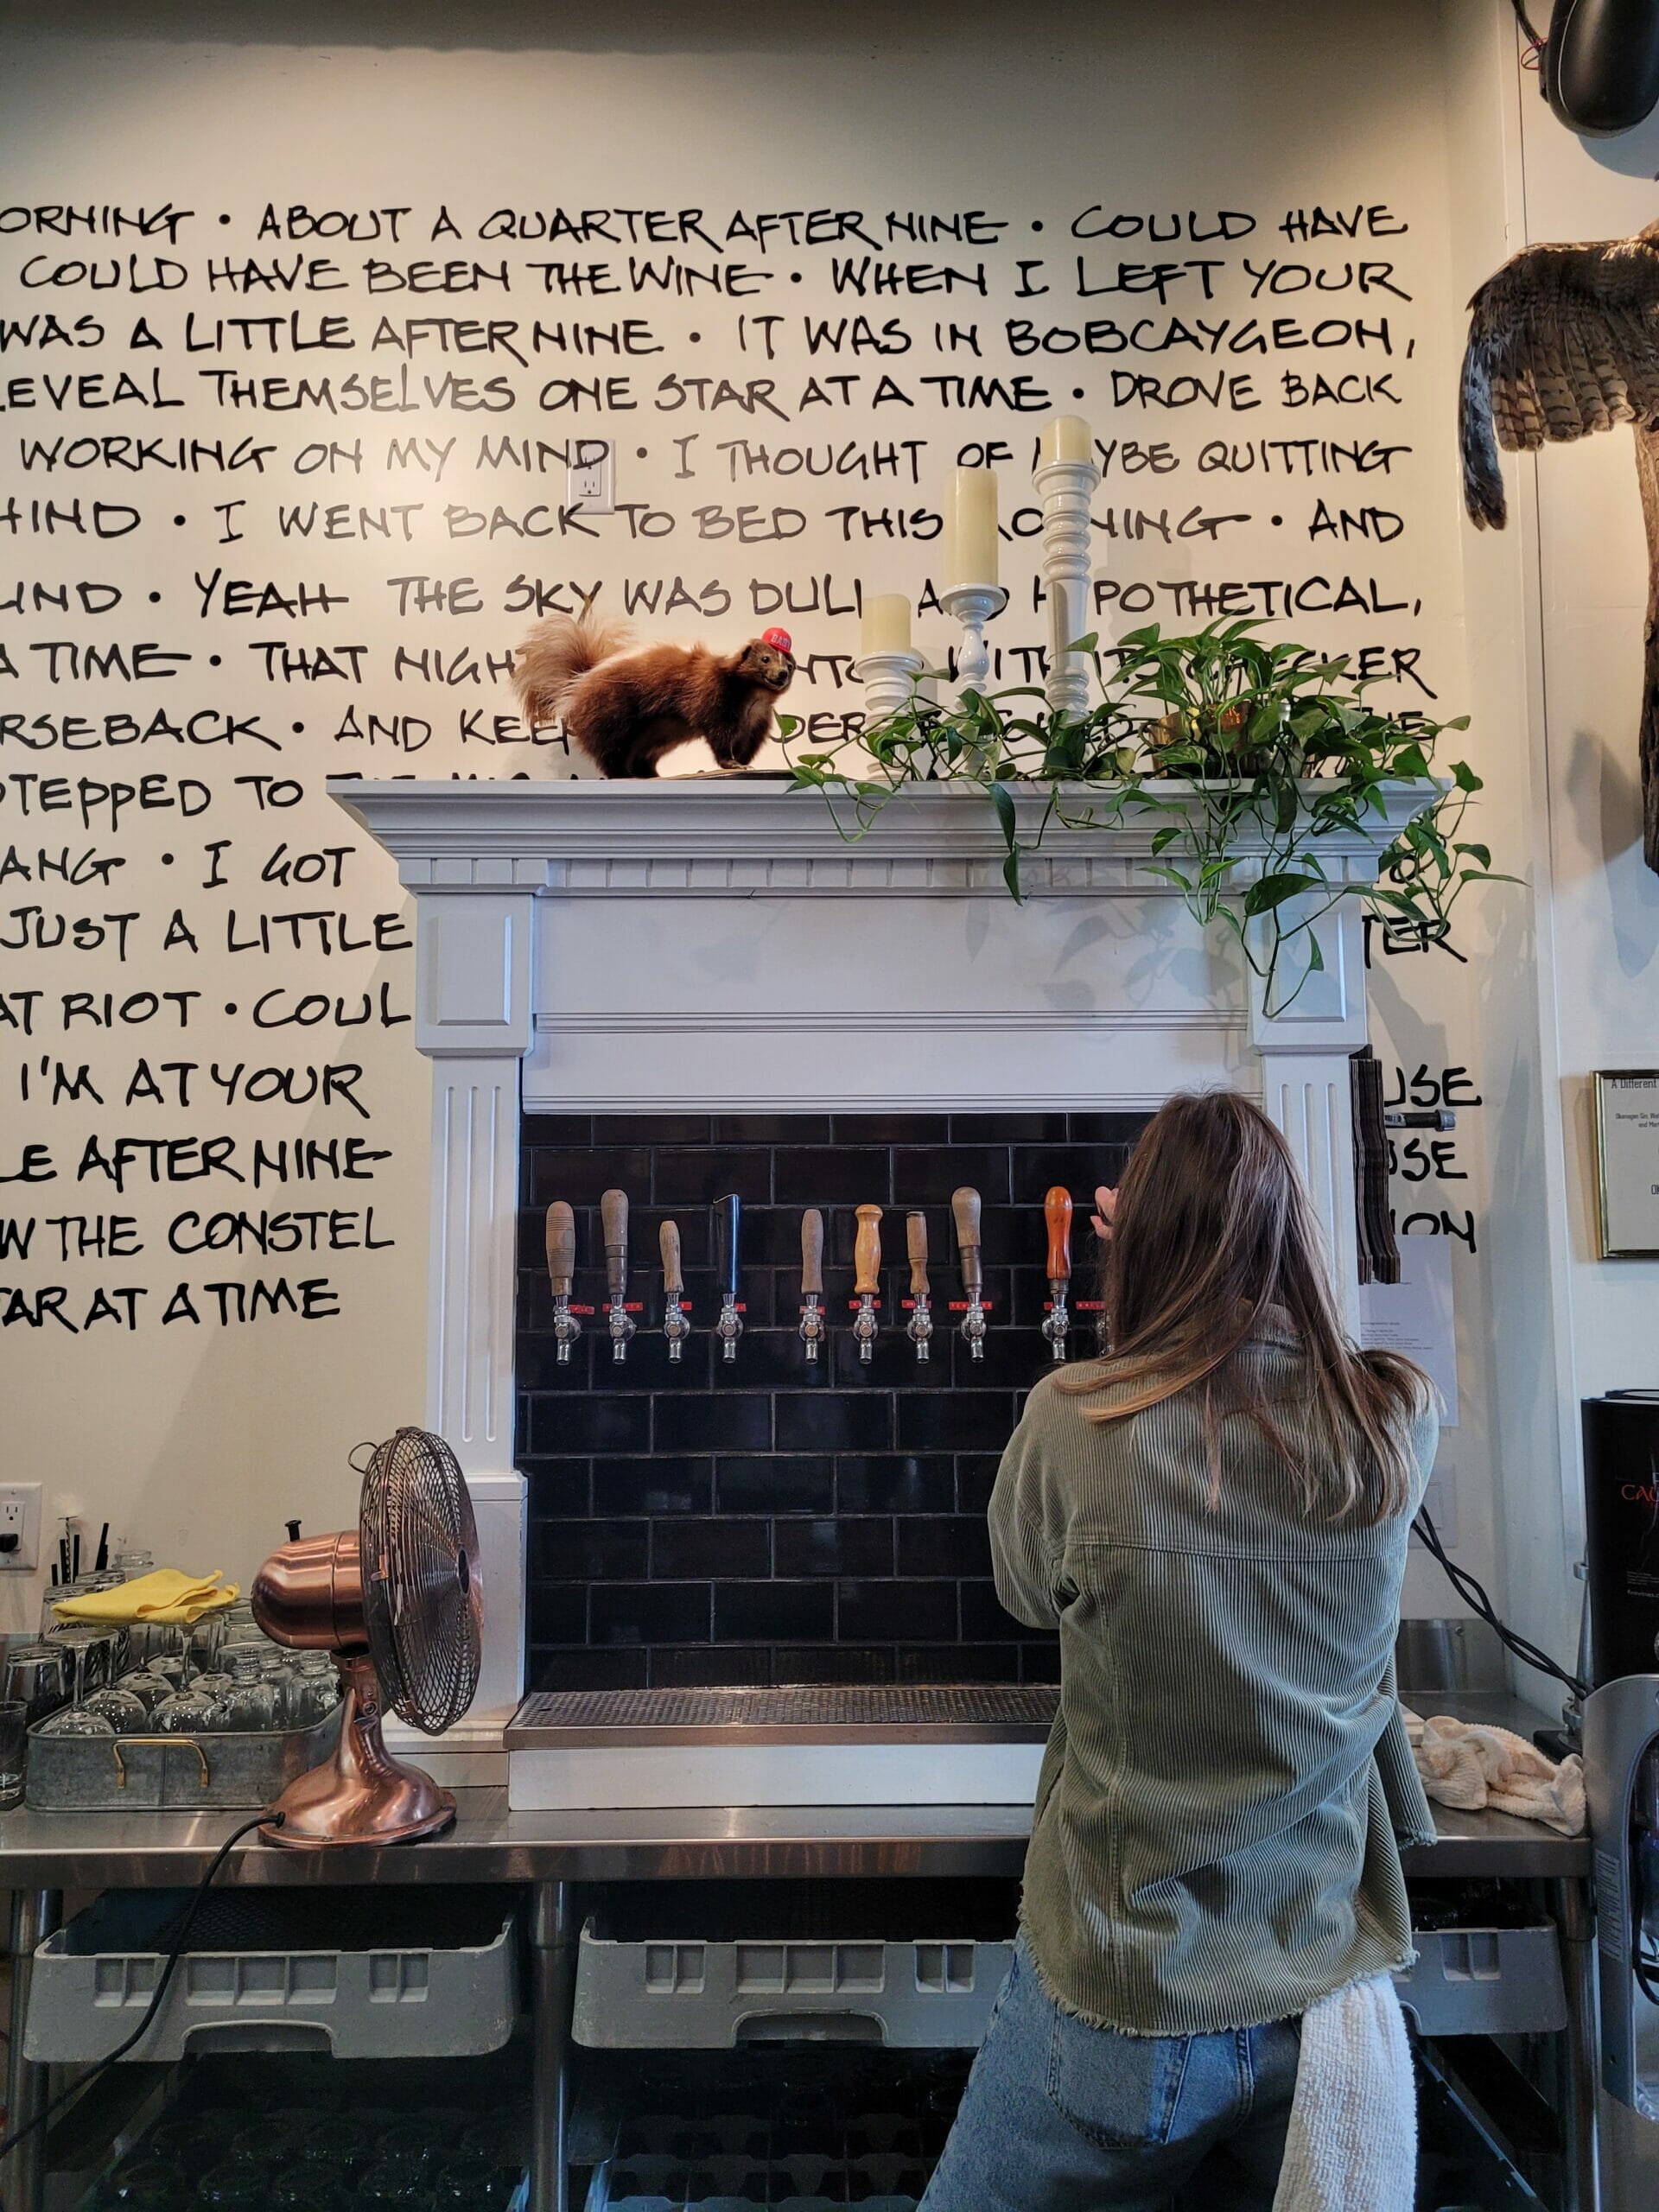 ORNING • ABOUT A QUARTER AFTER NINE • COULD HAVE
COULD HAVE BEEN THE WINE • WHEN I LEFT YOUR
WAS A LITTLE AFTER NINE • IT WAS IN BOBCAYGEON,
EVEAL THEMSELVES ONE STAR AT A TIME • DROVE BACK
WORKING ON MY MIND • I THOUGHT OF M YBE QUITTING
HIND • I WENT BACK TO BED THIS MORNING • AND
IND • YEAH THE SKY WAS DULL AND HYPOTHETICAL,
A TIME • THAT NIGH NTO WITH ITS CHECKER
RSEBACK • AND KEEP DER
STEPPED TO
ANG • I GOT
JUST A LITTLE TER
AT RIOT • COUL
I'M AT YOUR USE
LE AFTER NINE USE
W THE CONSTEL ION
TAR AT A TIME
A Different